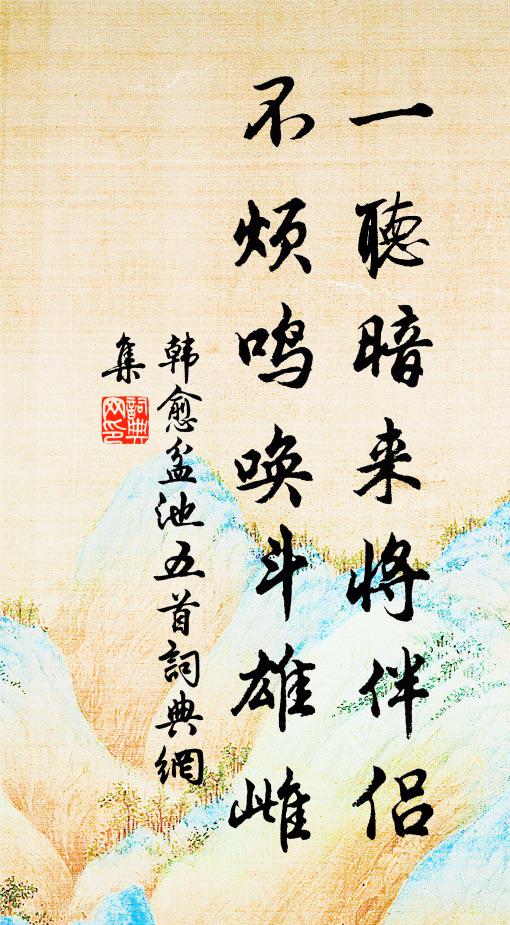 一聴暗来将伴侣
不烦鸣唤斗雄雌
韩愈盆池五首詞典網
集
詞典網印